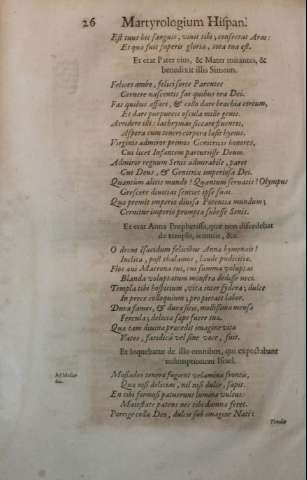 26 Martyrologium Hispan.
Est tuus hic sanguis, venit tibi, conserat Aras:
Et qua fuit superis gloria, tota tua est.
Et erat Pater eius, & Mater mirantes, &
benedixit illis Simeon.
Felices ambo, felici forte Parentes
Cernere nascentis fas quibus ora Dei.
Fas quibus affari, & collo dare brachia circum,
Et dare purpureis oscula mille genis.
Accedere tibi: lachrymas siccare fluentes,
Aspera cum teneri corpora læsit hyems.
Virginis admiror primos Genitricis honores,
Cui licet Infantem parturiisse Deum.
Admiror regnum Senis admirabile, paret
Cui Deus, & Genitrix imperiosa Dei.
Quantum alitis mundo! Quantum servatis! Olympus
Crescere divitias sentiet ipse suas.
Qua premit imperio diviso Potentia mundum,
Cernitur imperio prompta subesse Senis.
Et erat Anna Prophetissa, quæ non discedebat
de templo, ieiuniis, &c.
O decus felicibus Anna hymenæis!
Inclita, post thalamos, laude pudicitiæ.
Flos avi Matrona tui, cui summa voluptas
Blanda voluptatum monstra dedisse neci.
Templa tibi hospitium, vita inter sydera; dulce
In prece colloquium; pro pietate labor.
Dura fames, & dura sitis, mollissima mensa
Fercula; delicias sapè fuisse tua.
Qua tam divina procedit imagine vita
Vates, fatidica vel sine voce, fuit.
Et loquebatur de illo omnibus, qui expectabant
redemptionem Israel.
Ad Messiam
Mosaidos tenera fugiunt velamina frontis,
Qua nisi delicias, nil nisi dulce, sapit.
En tibi formosi patuerunt lumina vultus:
Maiestate patens nec tibi damna feret.
Porrige colla Deo, dulcis sub imagine Nati: